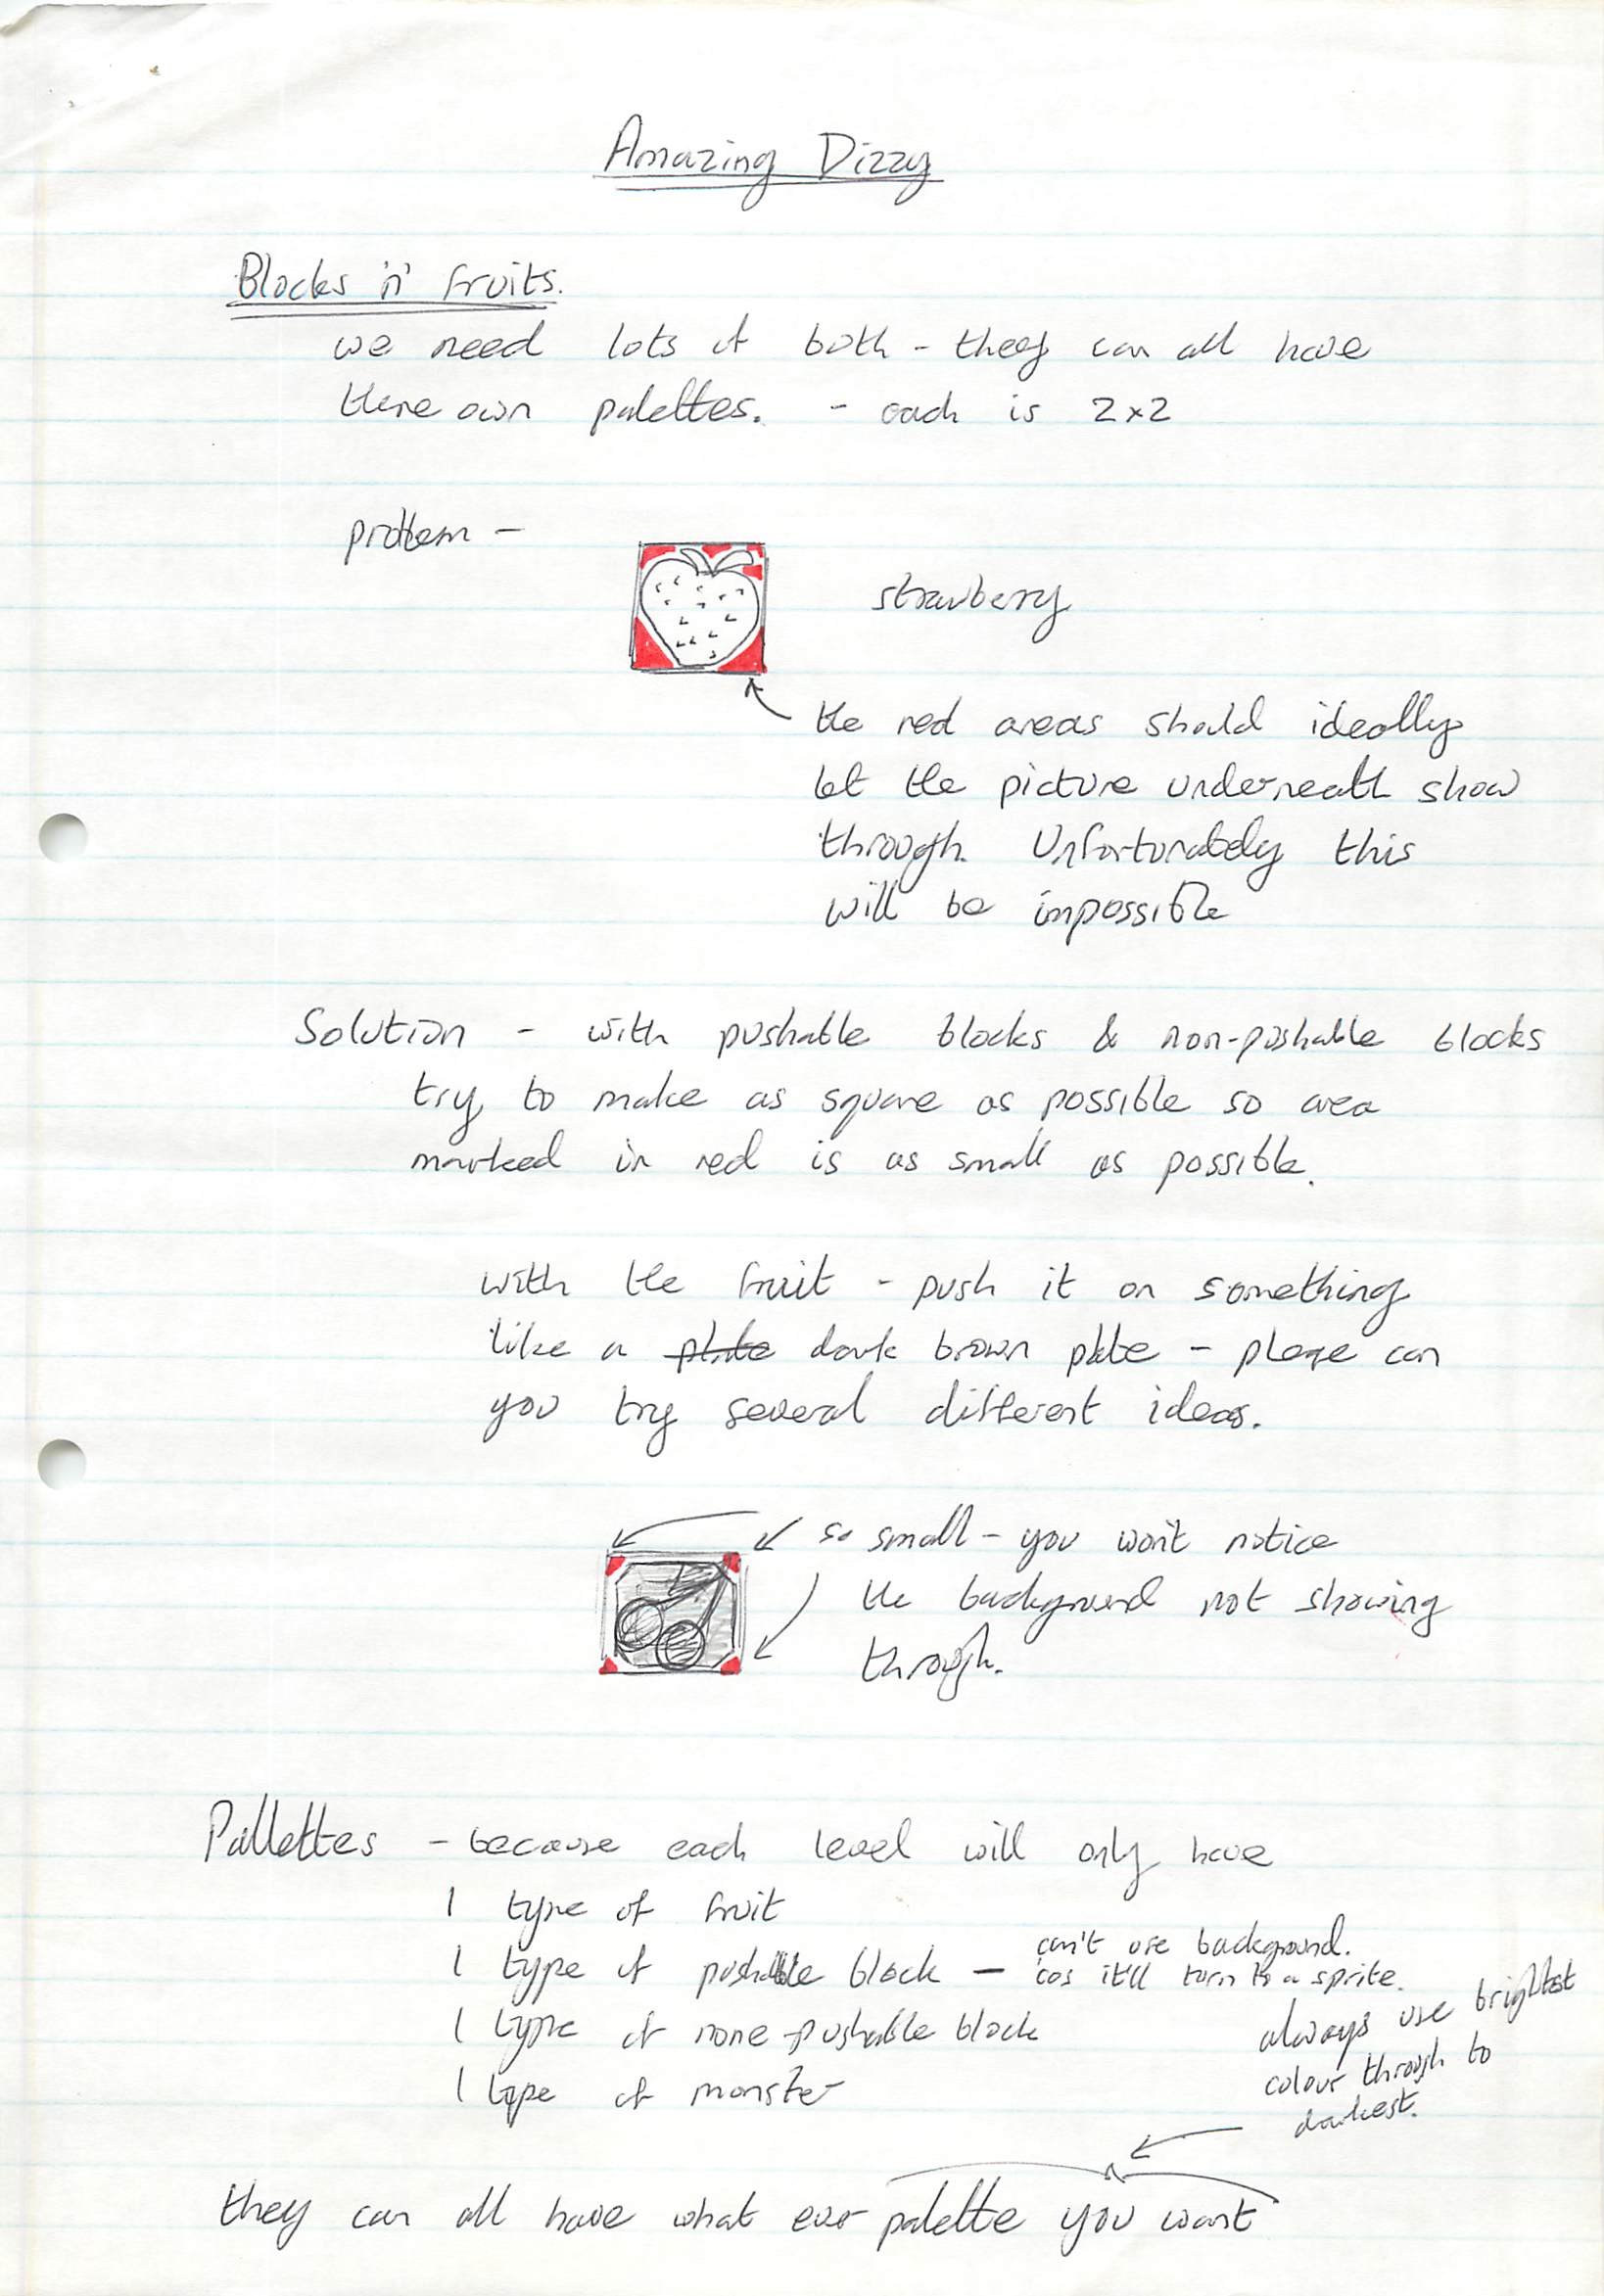 Amazing Dizzy
Blocks 'n' fruits.
we need lots of both - they can all have
there own palettes. - each is 2x2
problem -
strawberry
the red areas should ideally
let the picture underneath show
through. Unfortunately this
will be impossible
Solution - with pushable blocks & non-pushable blocks
try to make as square as possible so area
marked in red is as small as possible.
with the fruit - push it on something
like a plate dark brown plate - please can
you try several different ideas.
so small - you won't notice
the background not showing
through.
Pallettes - because each level will only have
1 type of fruit
1 type of pushable block - can't use background.
cos it'll turn to a sprite.
1 type of none-pushable block
1 type of monster
always use brightest
colour through to
darkest.
they can all have what ever palette you want